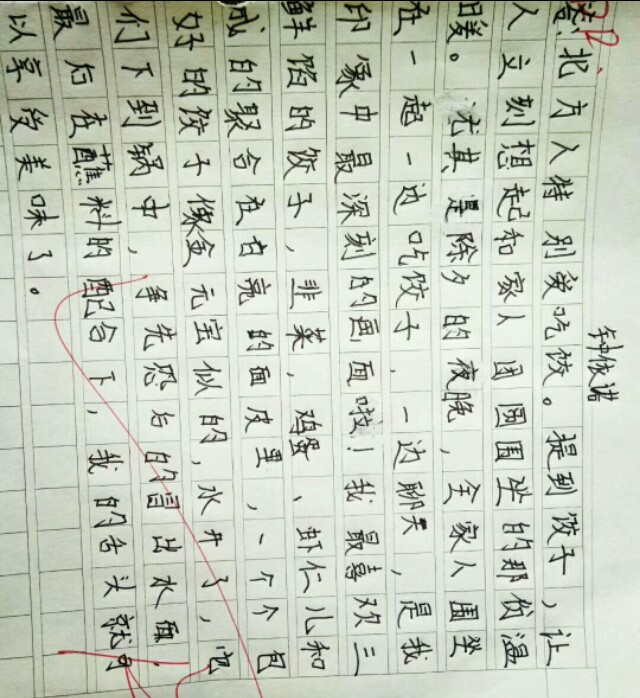 钟依诺
北方人特别爱吃饺。提到饺子，让
人立刻想起和家人团圆围坐的那份温
暖。尤其是除夕的夜晚，全家人围坐
在一起一边吃饺子，一边聊天，是我
印像中最深刻的画面哦！我最喜欢三
鲜馅的饺子，韭菜，鸡蛋、虾仁儿和
成的聚合在白亮的面皮里，一个个包
好的饺子像金元宝似的，水开了，它
们下到锅中，争先恐后的冒出水面，
最后在蘸料的配合下，我的舌头就可
以享受美味了。